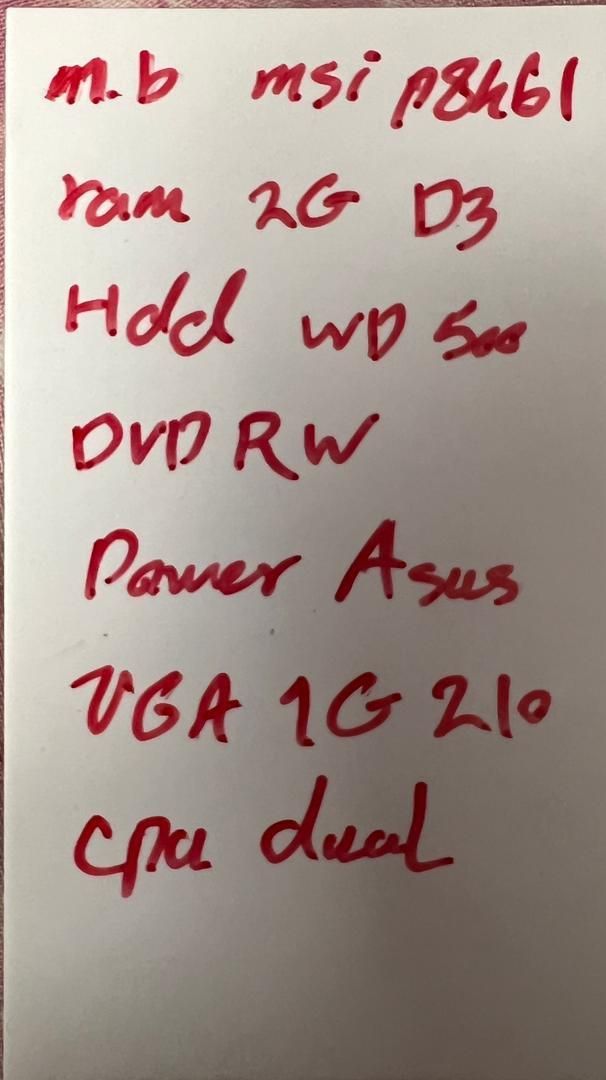 m.b msi p8h61
ram 2G D3
Hdd WD 500
DVD RW
Power Asus
VGA 1G 210
cpu dual